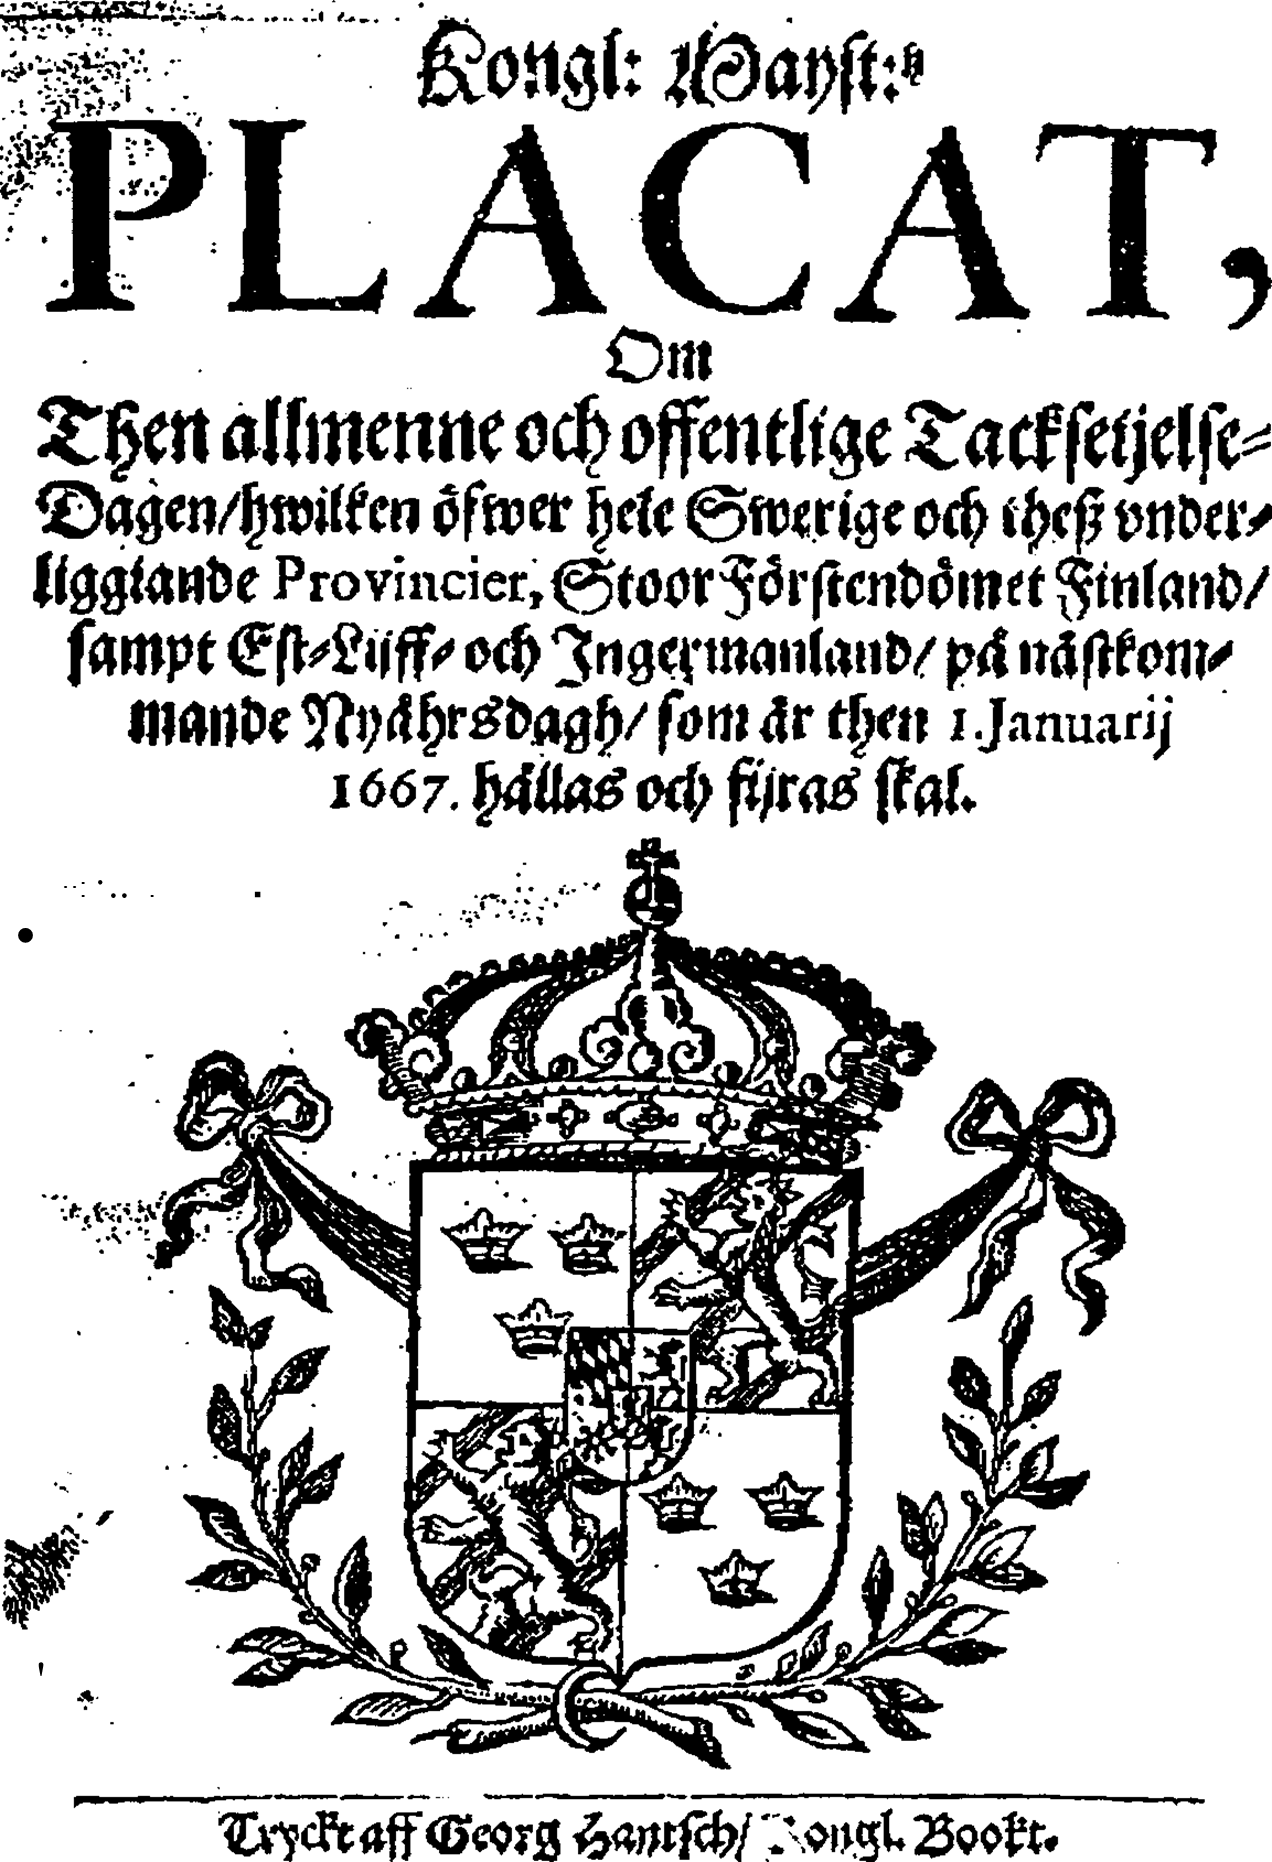 Kongl: Mayst:tz
PLACAT,
Om
Then allmenne och offentlige Tacksetjelse-
Dagen/ hwilken öfwer hele Swerige och theß vnder-
liggiande Provincier, Stoor Förstendömet Finland/
sampt Est- Lijff- och Ingermanland/ på nästkom-
mande Nyåhrsdagh/ som är then 1. Januarij
1667. hållas och fijras skal.
Tryckt aff Georg Hantsch/ Kongl. Bookt.